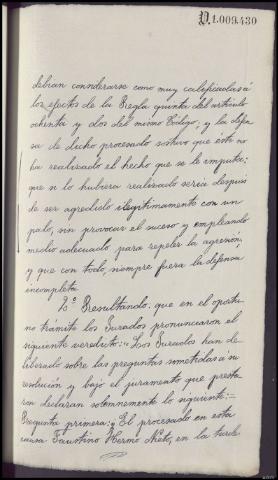 D1.009.430
debian considerarse como muy calificadas á
los efectos de la Regla quinta del articulo
ochenta y dos del mismo Código; y la defen
sa de dicho procesado sostuvo que éste no
ha realizado el hecho que se le imputa;
que si lo hubiera realizado seria después
de ser agredido ilegitimamente con un
palo, sin provocar el suceso y empleando
medio adecuado para repeler la agresión;
y que con todo, siempre fuera la defensa
incompleta
2º Resultando: que en el oportu
no trámite los Jurados pronunciaron el
siguiente veredicto: "Los Jurados han de
liberado sobre las preguntas sometidas á su
resolución y bajo el juramento que presta
ron declaran solemnemente lo siguiente:
Pregunta primera: ¿El procesado en esta
causa Faustino Hermo Nieto, en la tarde